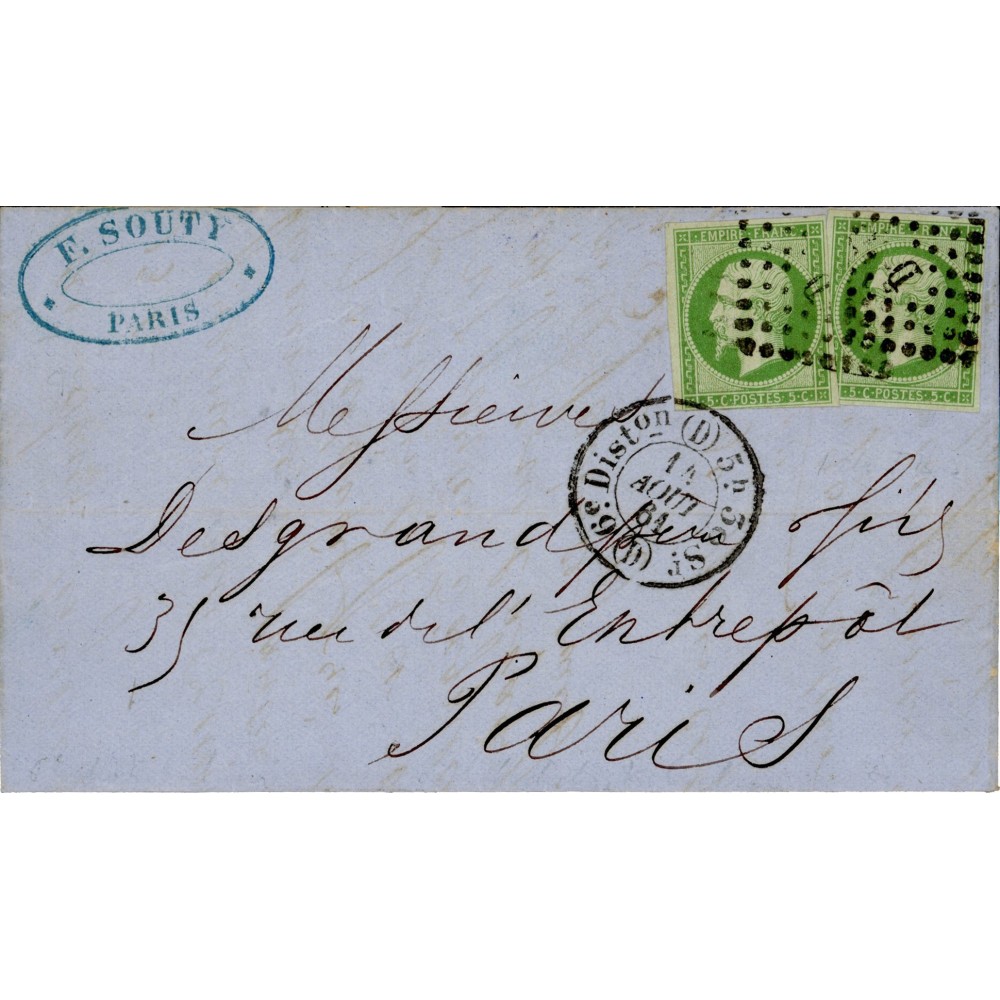 F. SOUTY
PARIS
EMPIRE FRANC
5 · C · POSTES · 5 · C ·
EMPIRE FRANC
5 · C · POSTES · 5 · C ·
D
D
6e Diston (D) 5h 30 Sr (D)
14
AOUT
61
Messieurs
Desgrand père fils
35 rue de l'Entrepôt
Paris